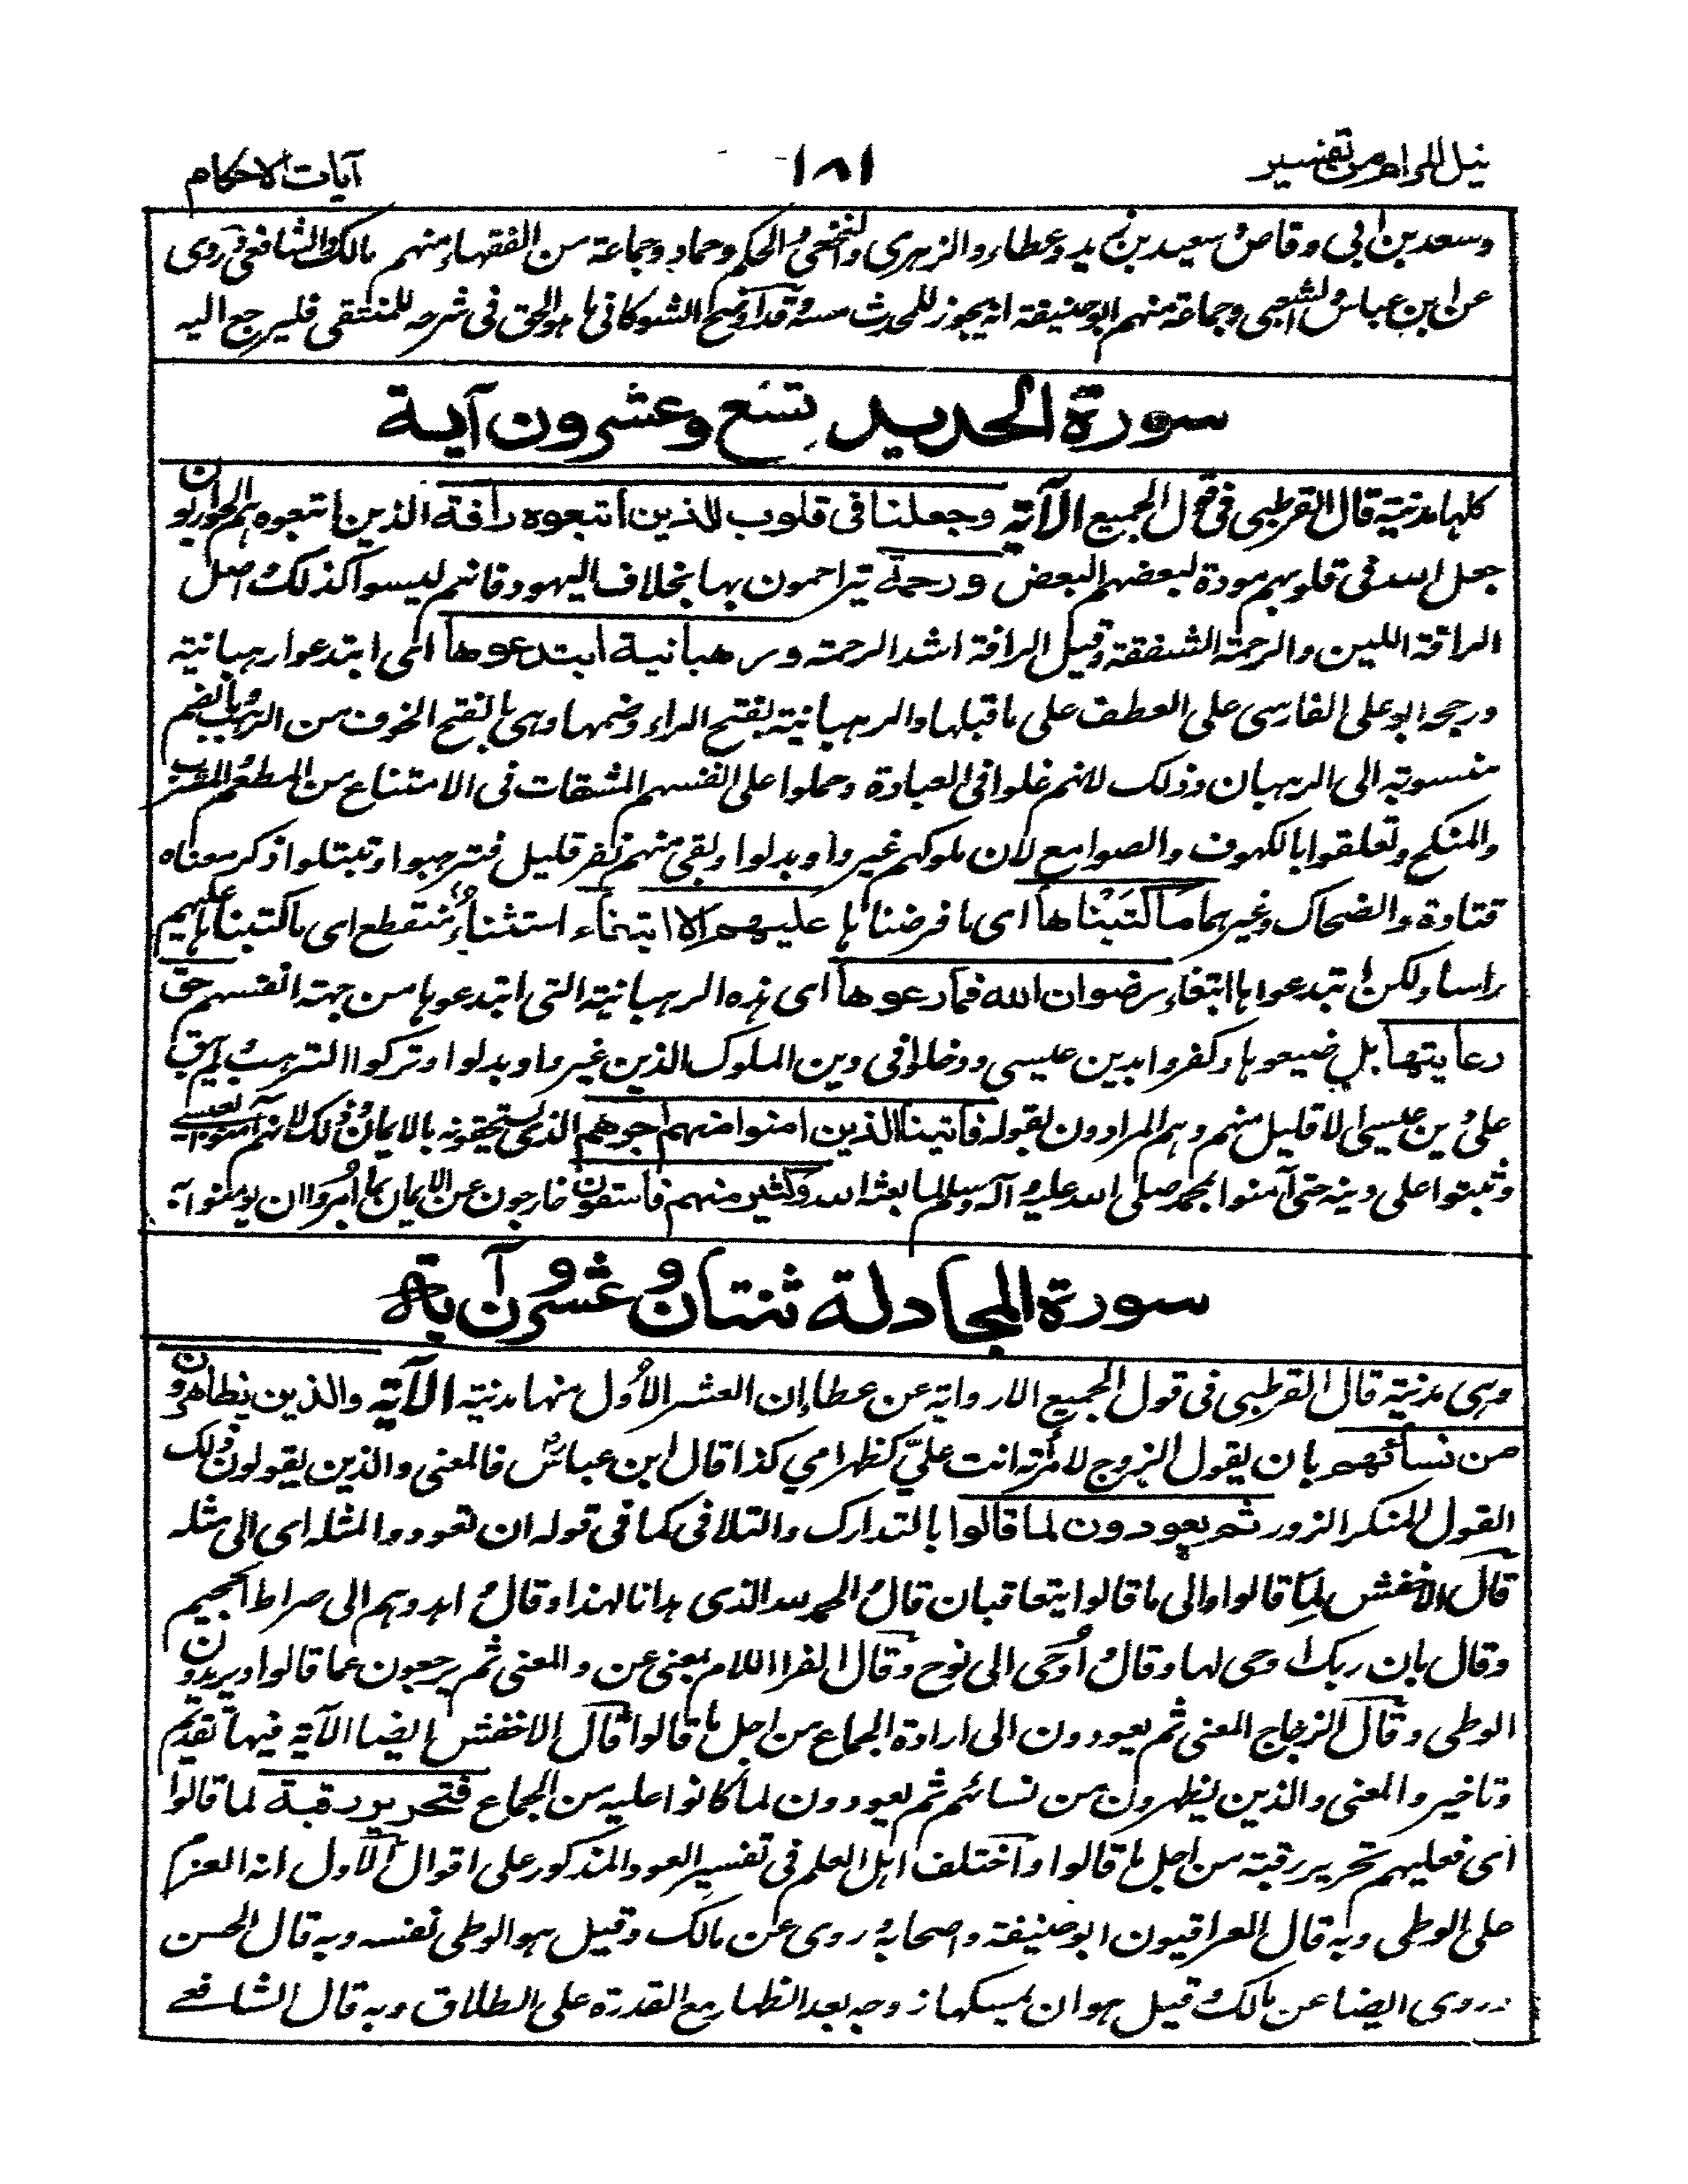 نيل المرام من تفسير ١٨١ آيات الاحكام
وسعد بن ابى وقاص وسعيد بن زيد وعطاء والزهرى والنخعى والحكم وحماد وجماعة من الفقهاء منهم مالك والشافعى وروى
عن ابن عباس والشعبى وجماعة منهم ابو حنيفة انه يجوز للمحدث مسه وقد اوضح الشوكانى ما هو الحق فى شرحه للمنتقى فليرجع اليه
سورة الحديد تسع وعشرون آية
كلها مدنية قال القرطبى فى قول الجميع الآية وجعلنا فى قلوب الذين اتبعوه رأفة الذين اتبعوه هم الحواريون
جعل الله فى قلوبهم مودة لبعضهم البعض ورحمة يتراحمون بها بخلاف اليهود فانهم ليسوا كذلك واصل
الرافة اللين والرحمة الشفقة وقيل الرافة اشد الرحمة ورهبانية ابتدعوها اى ابتدعوا رهبانية
ورجحه ابو على الفارسى على العطف على ما قبلها والرهبانية بفتح الراء وضمها وهى بالفتح الخوف من الرهب وبالضم
منسوبة الى الرهبان وذلك لانهم غلوا فى العبادة وحملوا على انفسهم المشقات فى الامتناع من المطعم والمشرب
والمنكح وتعلقوا بالكهوف والصوامع لان ملوكهم غيروا وبدلوا وبقى منهم نفر قليل فترهبوا وتبتلوا ذكر معناه
قتادة والضحاك وغيرهما ما كتبناها اى ما فرضناها عليهم الا ابتغاء استثناء منقطع اى ما كتبناها عليهم
راسا ولكن ابتدعوها ابتغاء رضوان الله فما رعوها اى هذه الرهبانية التى ابتدعوها من جهة انفسهم حق
رعايتها بل ضيعوها وكفروا بدين عيسى ودخلوا فى دين الملوك الذين غيروا وبدلوا وتركوا الترهب ولم يبق
على دين عيسى الا قليل منهم وهم المرادون بقوله فآتينا الذين امنوا منهم اجرهم الذى يستحقونه بالايمان وذلك لانهم آمنوا بعيسى
وثبتوا على دينه حتى آمنوا بمحمد صلى الله عليه وآله وسلم لما بعثه الله وكثير منهم فاسقون خارجون عن الايمان بما امروا ان يومنوا به
سورة المجادلة ثنتان وعشرون آية
وهى مدنية قال القرطبى فى قول الجميع الا رواية عن عطاء ان العشر الاول منها مدنية الآية والذين يظاهرون
من نسائهم بان يقول الزوج لامرته انت علي كظهر امي كذا قال ابن عباس فالمعنى والذين يقولون ذلك
القول المنكر الزور ثم يعودون لما قالوا بالتدارك والتلافى كما فى قوله ان تعودوا لمثله اى الى مثله
قال الاخفش لما قالوا والى ما قالوا يتعاقبان قال الحمد لله الذى هدانا لهذا وقال اهدوهم الى صراط الجحيم
وقال بان ربك اوحى لها وقال اوحى الى نوح وقال الفراء اللام بمعنى عن والمعنى ثم يرجعون عما قالوا ويريدون
الوطى وقال الزجاج المعنى ثم يعودون الى ارادة الجماع من اجل ما قالوا قال الاخفش ايضا الآية فيها تقديم
وتاخير والمعنى والذين يظهرون من نسائهم ثم يعودون لما كانوا عليه من الجماع فتحرير رقبة لما قالوا
اى فعليهم تحرير رقبة من اجل ما قالوا واختلف اهل العلم فى تفسير العود المذكور على اقوال الاول انه العزم
على الوطى وبه قال العراقيون ابو حنيفة واصحابه وروى عن مالك وقيل هو الوطى نفسه وبه قال الحسن
وروى ايضا عن مالك وقيل هو ان يمسكها زوجه بعد الظهار مع القدرة على الطلاق وبه قال الشافعى